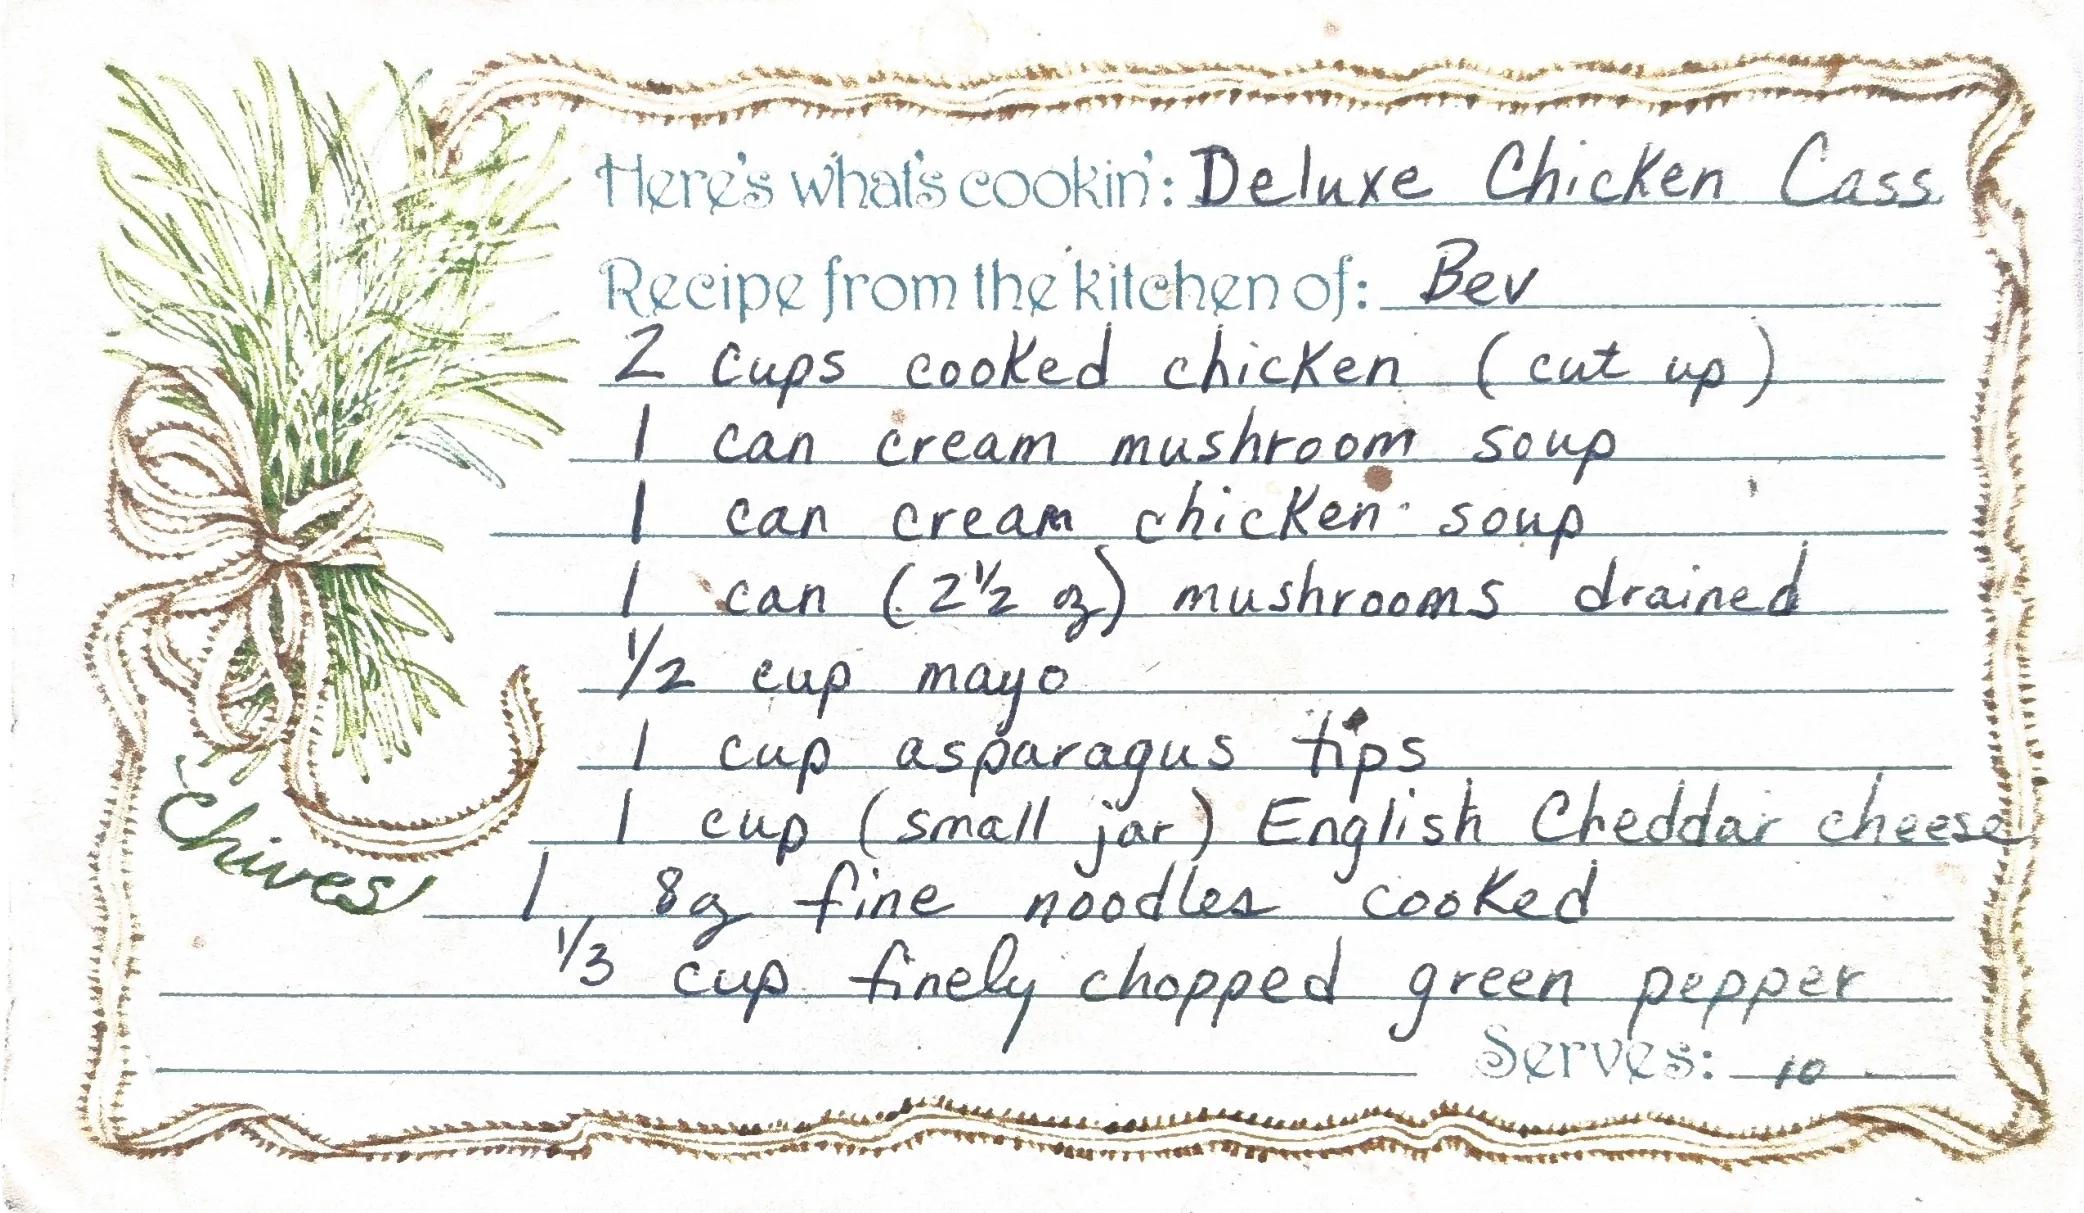 Here's what's cookin': Deluxe Chicken Cass.
Recipe from the kitchen of: Bev
2 cups cooked chicken (cut up)
1 can cream mushroom soup
1 can cream chicken soup
1 can (2½ oz) mushrooms drained
½ cup mayo
1 cup asparagus tips
1 cup (small jar) English Cheddar cheese
1 8oz fine noodles cooked
⅓ cup finely chopped green pepper
Serves: 10
Chives